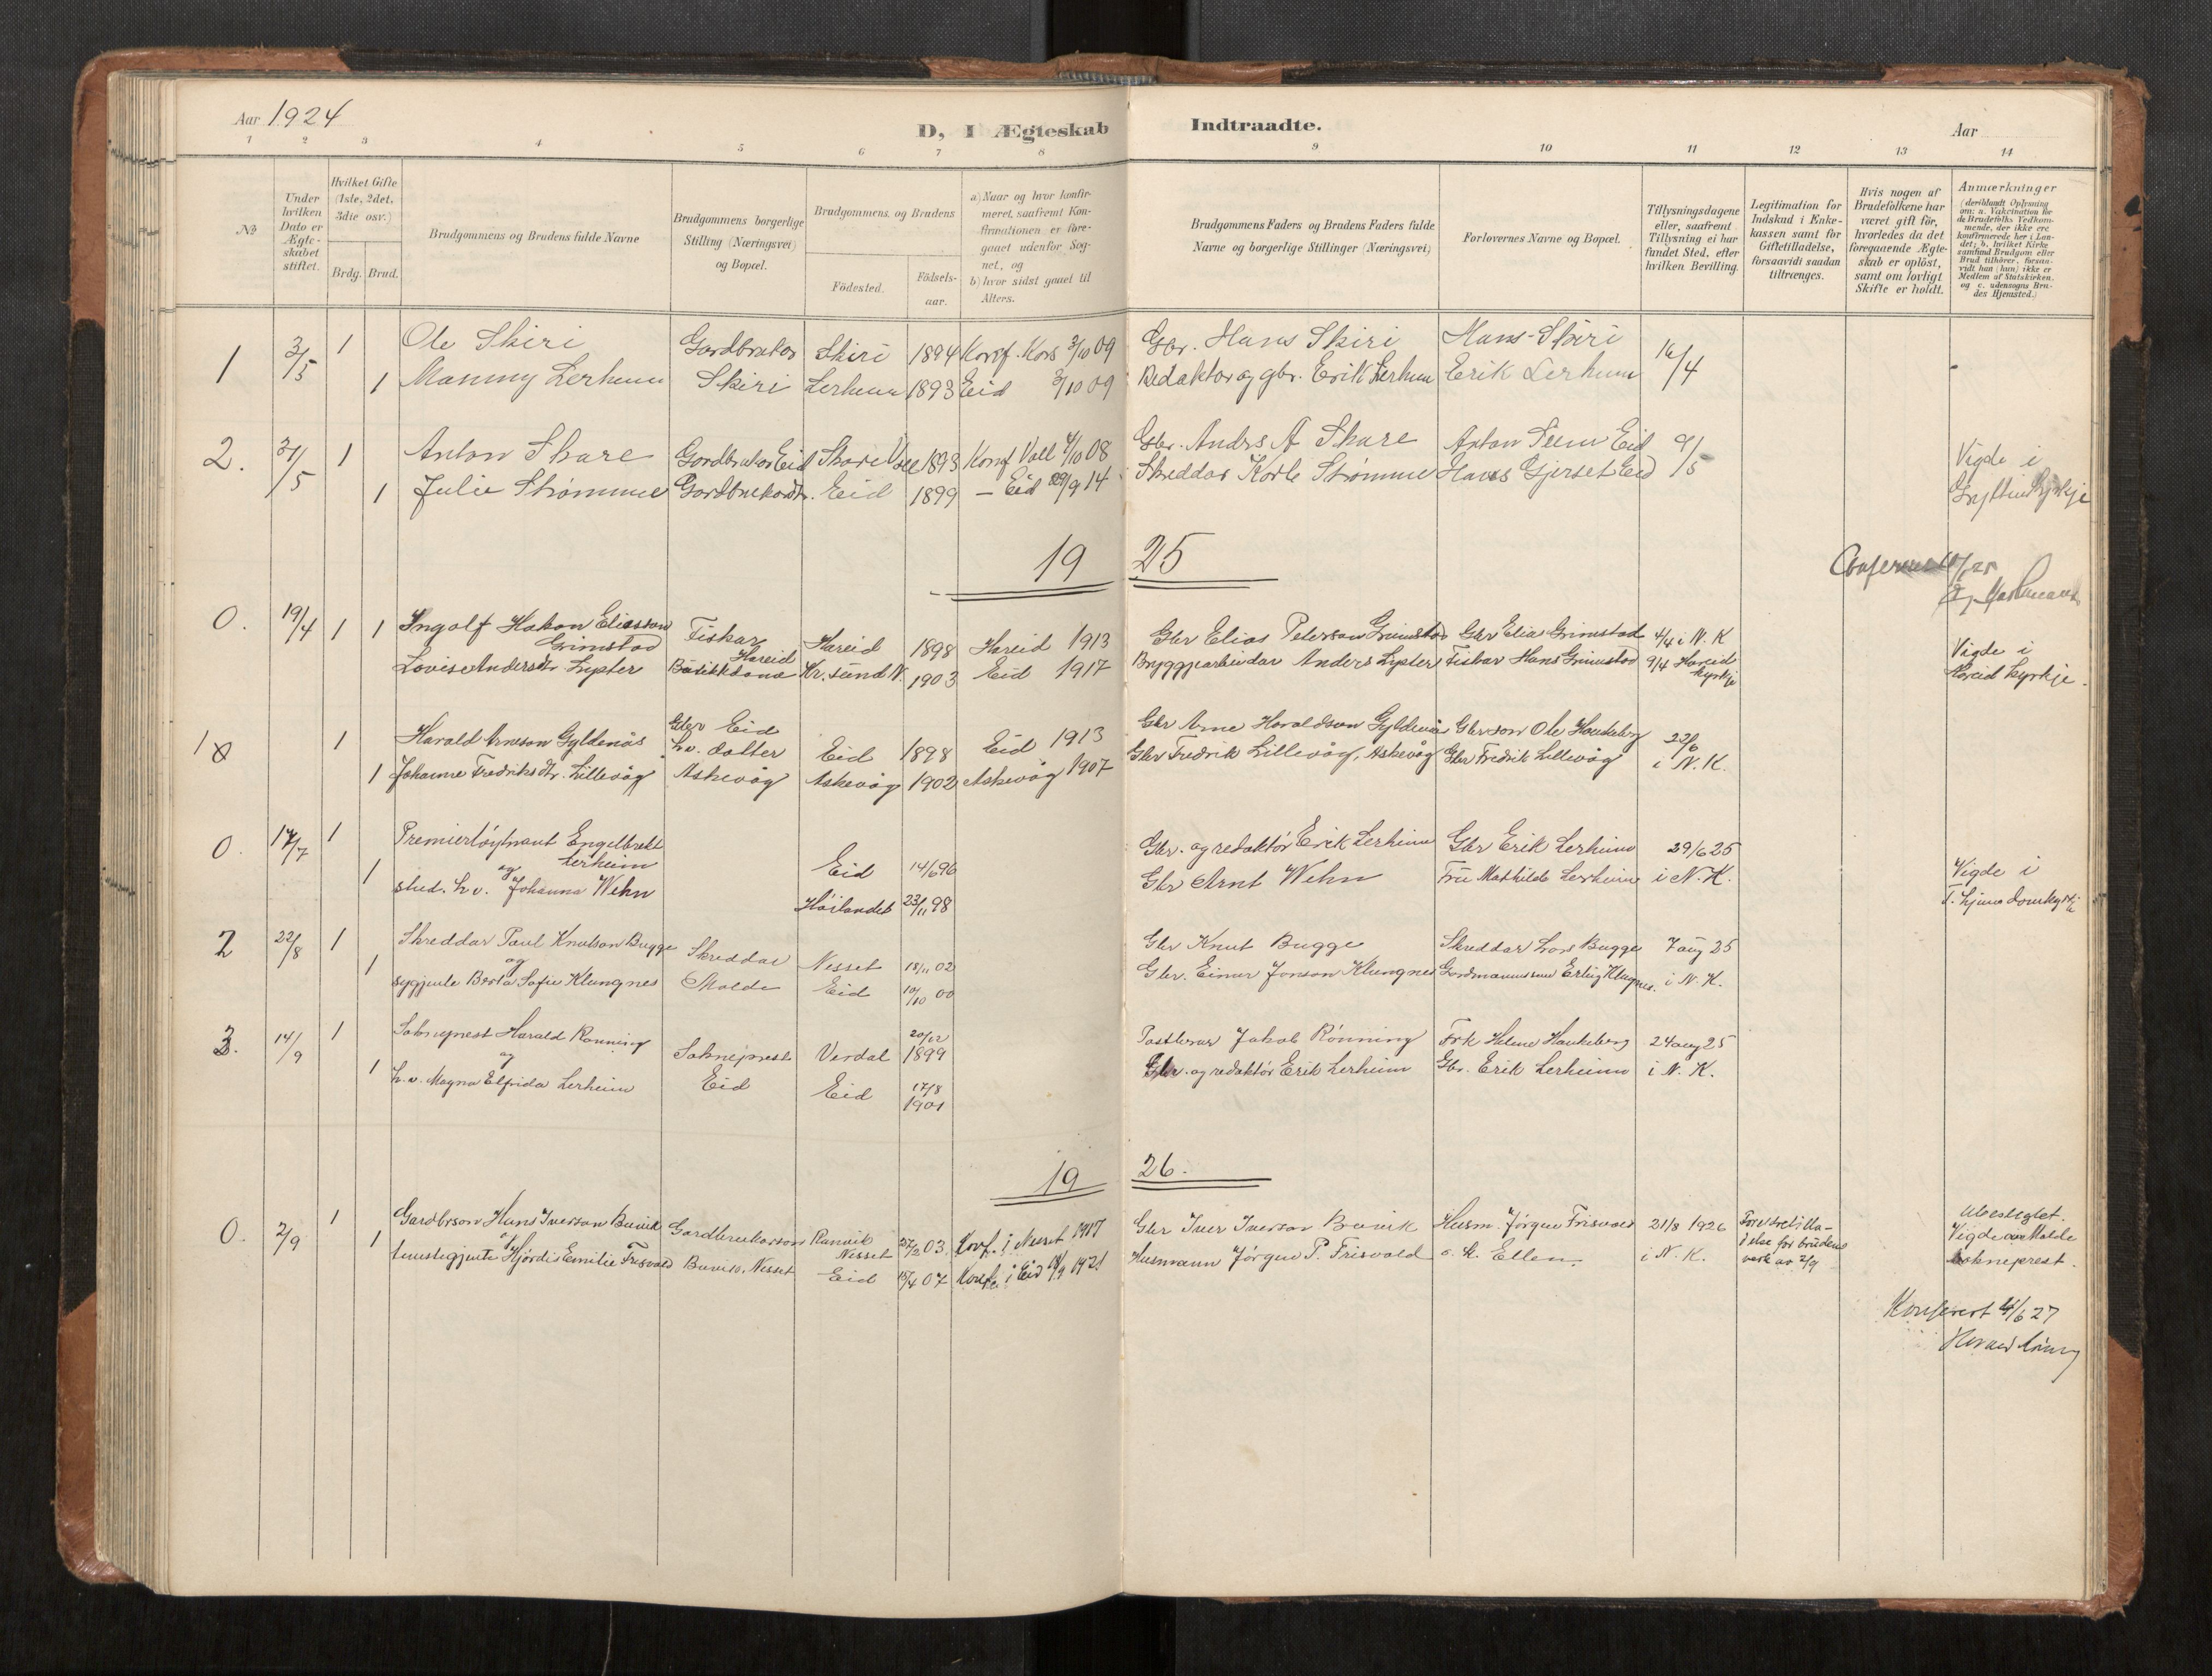 Aar 1924
D, I Ægteskab
Indtraadte.
Aar
1 2 3 4 5 6 7 8 9 10 11 12 13 14
№
Under hvilken Dato er Ægteskabet stiftet.
Hvilket Gifte (1ste, 2det, 3die osv.)
Brdg. Brud.
Brudgommens og Brudens fulde Navne
Brudgommens borgerlige Stilling (Næringsvei) og Bopæl.
Brudgommens og Brudens
Fødested.
Fødsels-aar.
a) Naar og hvor konfir-
meret, saafremt Kon-
firmationen er fore-
gaaet udenfor Sog-
net, og
b) hvor sidst gaaet til
Alters.
Brudgommens Faders og Brudens Faders fulde
Navne og borgerlige Stillinger (Næringsvei)
Forlovernes Navne og Bopæl.
Tillysningsdagene
eller, saafremt
Tillysning ei har
fundet Sted, efter
hvilken Bevilling.
Legitimation for
Indskud i Enke-
kassen samt for
Giftetilladelse,
forsaavidt saadan
tiltrænges.
Hvis nogen af
Brudefolkene har
været gift før,
hvorledes da det
foregaaende Ægte-
skab er opløst,
samt om lovligt
Skifte er holdt.
Anmærkninger
(deriblandt Oplysning
om: a. Vakcination for
de Brudefolks Vedkom-
mende, der ikke ere
konfirmerede her i Lan-
det; b. hvilket Kirke-
samfund Brudgom eller
Brud tilhører, forsaa-
vidt han (hun) ikke er
Medlem af Statskirken.
og c. udensogns Bru-
des Hjemsted.)
1 3/5 1 Ole Skiri Gardbrukar Skiri 1894 Konf. Kors 3/10 09 Gbr. Hans Skiri Hans Skiri 16/4
1 Manny Lerheim Skiri Lerheim 1893 Eid 3/10 09 Redaktør og gbr. Erik Lerheim Erik Lerheim
2. 31/5 1 Anton Skare Gardbrukar Eid Skare 1893 Konf Voll 4/10 08 Gbr. Andrs A Skare Anton Seem Eid 9/5 Vigde i
1 Julie Strømme Gardbrukardtr. Eid 1899 — Eid 29/9 14 Skreddar Karle Strømme Hans Gjerset Eid
19 25
0. 19/4 1 1 Ingolf Hakon Eliasson
Grimstad Fiskar Hareid Hareid 1898 Hareid 1913 Gbr Elias Peterson Grimstad Gbr Elias Grimstad 4/4 i N. K Vigde i
Lovise Andersdtr. Lypter Kr. sund N. 1903 Eid 1917 Bryggjearbeidar Anders Lypter Fiskar Hans Grimstad 9/4 Hareid kyrkje Hareid kyrkje.
1 1 Harald Arneson Gyldenås Gbr Eid Eid 1898 Eid 1913 Gbr Arne Haraldson Gyldenås Gbrson Ole Haukeberg 22/6
1 Johanne Fredriksdtr. Lillevåg h.v. dotter Askevåg Askevåg 1902 Askevåg 1907 Gbr Fredrik Lillevåg, Askevåg Gbr Fredrik Lillevåg i N. K.
0. 17/7 1 Premierløytnant Engelbrekt
Lerheim Eid 14/6 96 Gbr. og redaktør Erik Lerheim Gbr Erik Lerheim 29/6 25
og
1 stud. h.v. Johanna Wehn Høilandet 23/11 98 Gbr Arnt Wehn Fru Mathilde Lerheim i N. K. Vigde i
T.hjems domkyrkje
2 22/8 1 Skreddar Paul Knutson Bugge Skreddar Nesset 18/11 02 Gbr Knut Bugge Skreddar Lars Bugge 7 aug 25
og
1 sygjente Berta Sofie Klungnes Molde Eid 10/10 00 Gbr. Einar Jonson Klungnes Gardmannsson Erling Klungnes. i N. K.
3. 14/9 1 Sokneprest Harald Rønning Sokneprest Verdal 20/12 1899 Postberar Jakob Rønning Frk Helene Haukeberg 24 aug 25
og
1 h.v. Magna Elfrida Lerheim Eid Eid 17/8 1901 Gbr. og redaktør Erik Lerheim Gbr. Erik Lerheim i N. K.
19 26.
0. 2/9 1 Gardbrson Hans Iverson Buvik Gardbrukarson Ranvik Nesset 27/2 03. Konf. i Nesset 1917 Gbr Iver Iverson Buvik Husm. Jørgen Frisvold 21/8 1926 Ubeslegtet.
og
1 tenestegjente Hjørdis Emilie Frisvold Buvik, Nesset Eid 15/4 07 Konf. i Eid 1921 Husmann Jørgen P. Frisvold o. k. Ellen. i N. K. Vigde av Molde
sokneprest.
Konferert 4/6 27
Harald Rønning